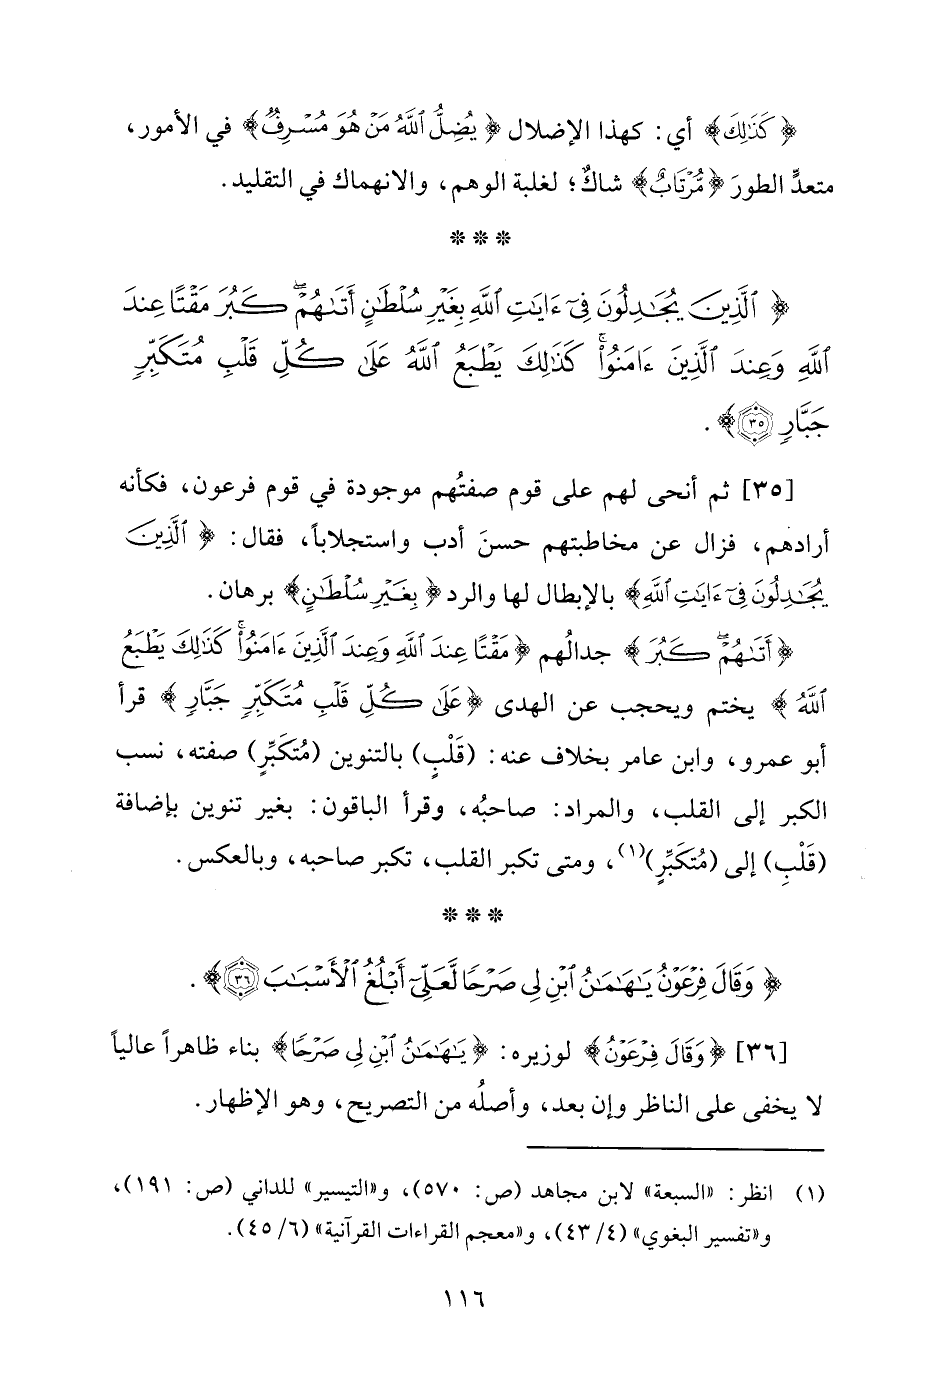 ﴿كَذَٰلِكَ﴾ أي: كهذا الإضلال ﴿يُضِلُّ ٱللَّهُ مَنۡ هُوَ مُسۡرِفٞ﴾ في الأمور،
متعدٍّ الطورَ ﴿مُّرۡتَابٌ﴾ شاكٌّ؛ لغلبة الوهم، والانهماك في التقليد.
* * *
﴿ٱلَّذِينَ يُجَٰدِلُونَ فِيٓ ءَايَٰتِ ٱللَّهِ بِغَيۡرِ سُلۡطَٰنٍ أَتَىٰهُمۡۖ كَبُرَ مَقۡتًا عِندَ
ٱللَّهِ وَعِندَ ٱلَّذِينَ ءَامَنُواْۚ كَذَٰلِكَ يَطۡبَعُ ٱللَّهُ عَلَىٰ كُلِّ قَلۡبِ مُتَكَبِّرٖ
جَبَّارٖ ٣٥﴾.
[٣٥] ثم أنحى لهم على قوم صفتُهم موجودة في قوم فرعون، فكأنه
أرادهم، فزال عن مخاطبتهم حسنَ أدب واستجلاباً، فقال: ﴿ٱلَّذِينَ
يُجَٰدِلُونَ فِيٓ ءَايَٰتِ ٱللَّهِ﴾ بالإبطال لها والرد ﴿بِغَيۡرِ سُلۡطَٰنٍ﴾ برهان.
﴿أَتَىٰهُمۡۖ كَبُرَ﴾ جدالُهم ﴿مَقۡتًا عِندَ ٱللَّهِ وَعِندَ ٱلَّذِينَ ءَامَنُواْۚ كَذَٰلِكَ يَطۡبَعُ
ٱللَّهُ﴾ يختم ويحجب عن الهدى ﴿عَلَىٰ كُلِّ قَلۡبِ مُتَكَبِّرٖ جَبَّارٖ﴾ قرأ
أبو عمرو، وابن عامر بخلاف عنه: (قَلْبٍ) بالتنوين (مُتَكَبِّرٍ) صفته، نسب
الكبر إلى القلب، والمراد: صاحبُه، وقرأ الباقون: بغير تنوين بإضافة
(قَلْبِ) إلى (مُتَكَبِّرٍ)(١)، ومتى تكبر القلب، تكبر صاحبه، وبالعكس.
* * *
﴿وَقَالَ فِرۡعَوۡنُ يَٰهَٰمَٰنُ ٱبۡنِ لِي صَرۡحٗا لَّعَلِّيٓ أَبۡلُغُ ٱلۡأَسۡبَٰبَ ٣٦﴾.
[٣٦] ﴿وَقَالَ فِرۡعَوۡنُ﴾ لوزيره: ﴿يَٰهَٰمَٰنُ ٱبۡنِ لِي صَرۡحٗا﴾ بناء ظاهراً عالياً
لا يخفى على الناظر وإن بعد، وأصلُه من التصريح، وهو الإظهار.
(١) انظر: «السبعة» لابن مجاهد (ص: ٥٧٠)، و«التيسير» للداني (ص: ١٩١)،
و«تفسير البغوي» (٤/ ٤٣)، و«معجم القراءات القرآنية» (٦/ ٤٥).
١١٦